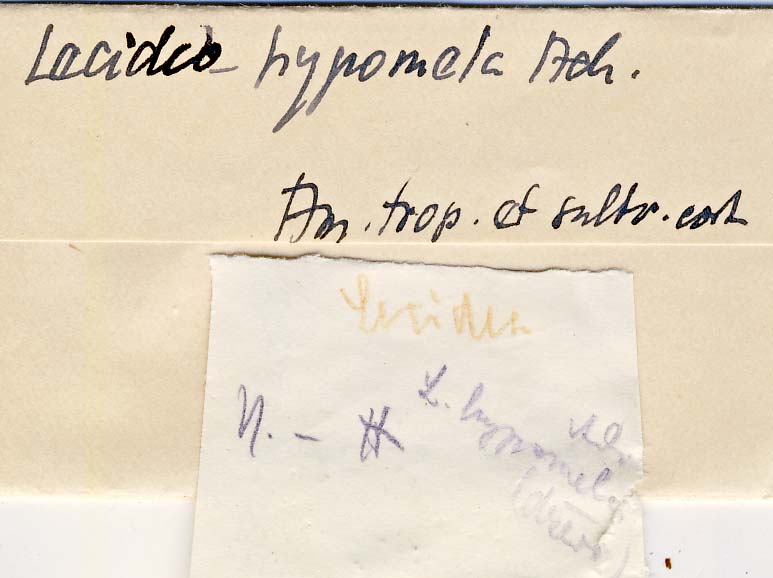 Lecidea hypomela Ach.
Am. trop. et subtr. cort
Lecidea
N. - H
L. hypomela